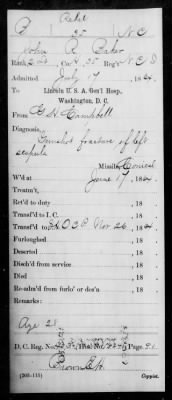 Baker
B 35 N C
John R Baker
Rank 2nd , Co. 35 Reg't N C
Admitted July 17 , 1864.
To Lincoln U. S. A. Gen'l Hosp.,
Washington, D. C.
From G. H. Campbell
Diagnosis, Gunshot fracture of left
scapula
Missile, Conical
W'd at June 17 , 1864.
Treatm't,
Ret'd to duty , 18
Transf'd to I. C. , 18
Transf'd to O C P Nov 26 , 1864
Furloughed , 18
Deserted , 18
Disch'd from service , 18
Died , 18
Re-adm'd from furlo' or des'n , 18
Remarks:
Age 21
D. C. Reg. No. Hos. No. Page
Brown
Copyist.